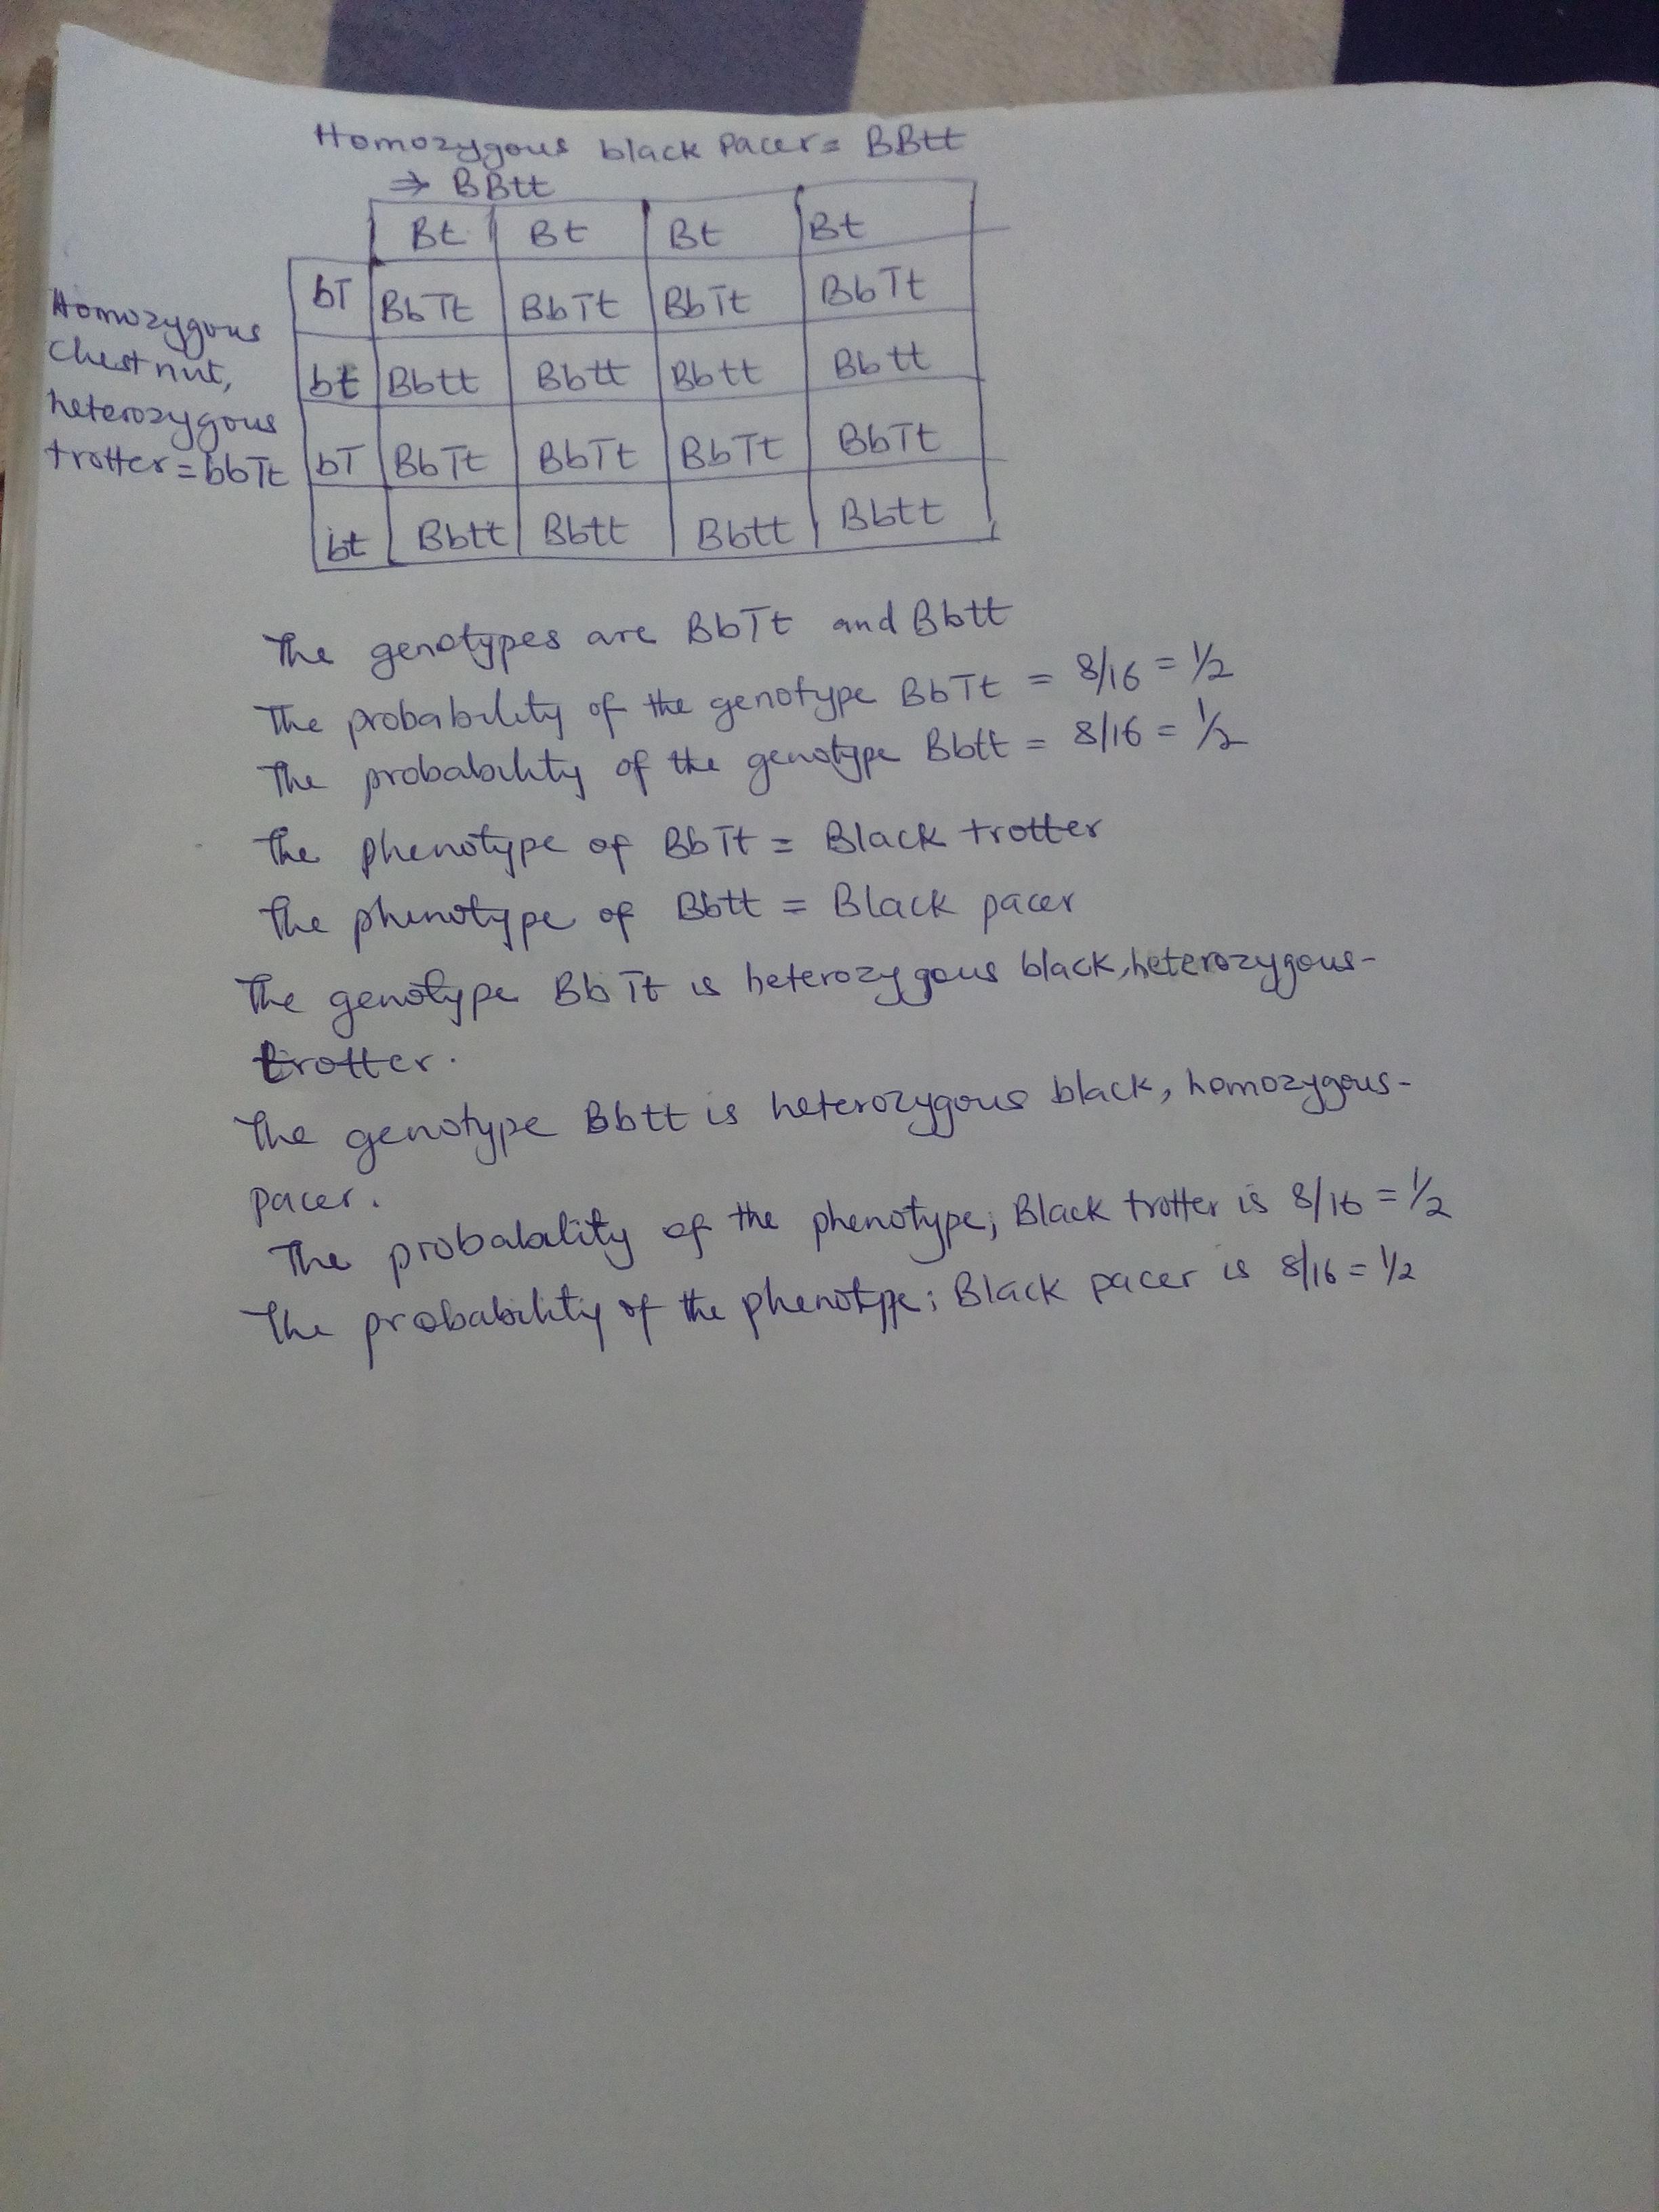 Homozygous black Pacer = BBtt
⇒ BBtt
Bt Bt Bt Bt
bT BbTt BbTt BbTt BbTt
Homozygous
Chestnut,
heterozygous
trotter = bbTt
bt Bbtt Bbtt Bbtt Bbtt
bT BbTt BbTt BbTt BbTt
bt Bbtt Bbtt Bbtt Bbtt
The genotypes are BbTt and Bbtt
The probability of the genotype BbTt = 8/16 = 1/2
The probability of the genotype Bbtt = 8/16 = 1/2
The phenotype of BbTt = Black trotter
The phenotype of Bbtt = Black pacer
The genotype BbTt is heterozygous black, heterozygous-
trotter.
The genotype Bbtt is heterozygous black, homozygous-
pacer.
The probabality of the phenotype; Black trotter is 8/16 = 1/2
The probability of the phenotype; Black pacer is 8/16 = 1/2